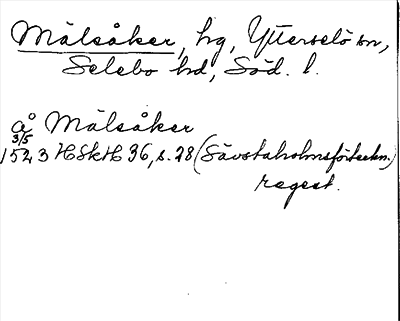 Mälsåker, hg, Ytterselö sn,
Selebo hd, Söd. l.
å Mälsåker
3/5
1523 HSkH 36, s. 28 (Sävstaholmsförteckn.)
regest.